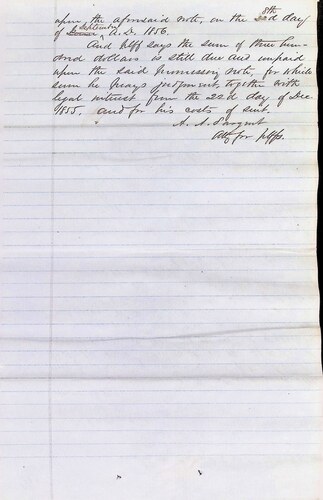 upon the aforesaid note, on the 22d 8th day
of Decem September A.D. 1856.
And plff says the sum of three hun-
dred dollars is still due and unpaid
upon the said promissory note, for which
sum he prays judgment, together with
legal interest from the 22d day of Dec.
1855. and for his costs of suit.
A. A. Sargent
Atty for plffs.